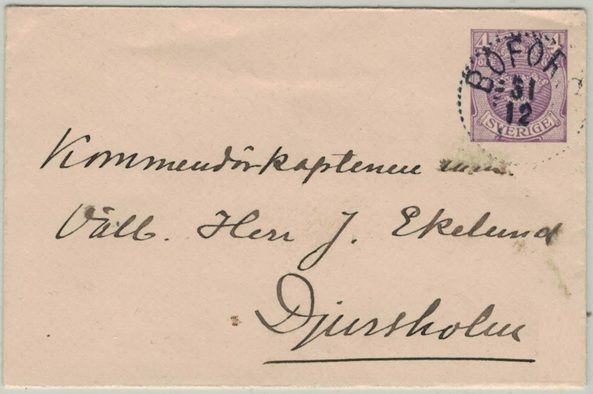 4 4
BOFOR
31
12
SVERIGE
Kommendörkaptenen m.m.
Välb. Herr J. Ekelund
Djursholm